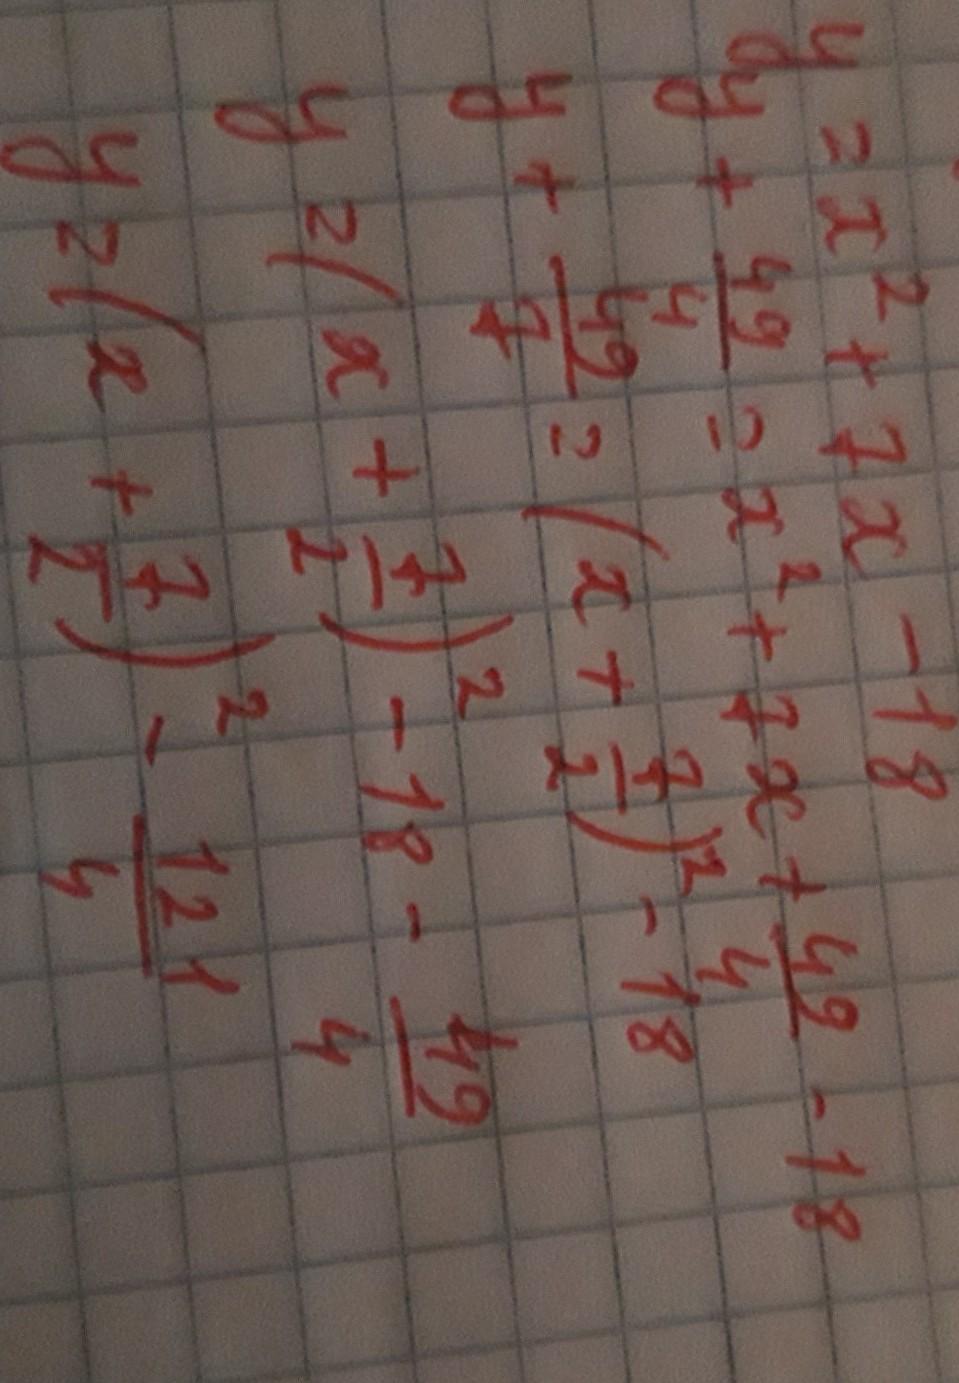 y = x² + 7x - 18
y + 49/4 = x² + 7x + 49/4 - 18
y + 49/4 = (x + 7/2)² - 18
y = (x + 7/2)² - 18 - 49/4
y = (x + 7/2)² - 121/4